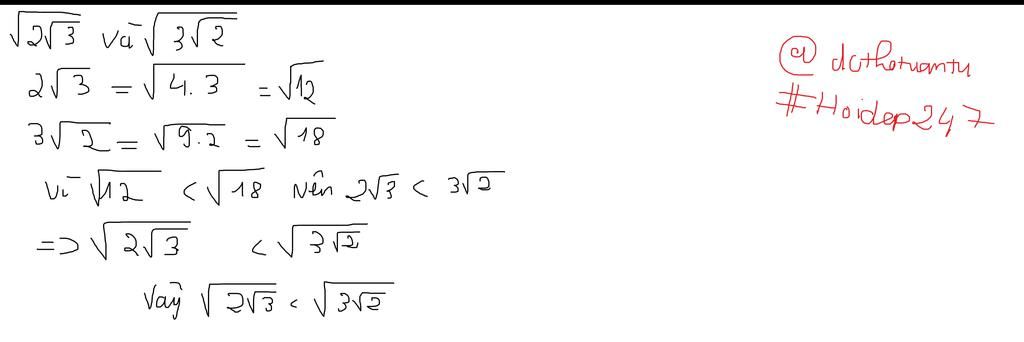 √2√3 và √3√2
2√3 = √4.3 = √12
3√2 = √9.2 = √18
vì √12 < √18 nên 2√3 < 3√2
=> √2√3 < √3√2
Vậy √2√3 < √3√2
@dcthotuantu
#Hoidap247